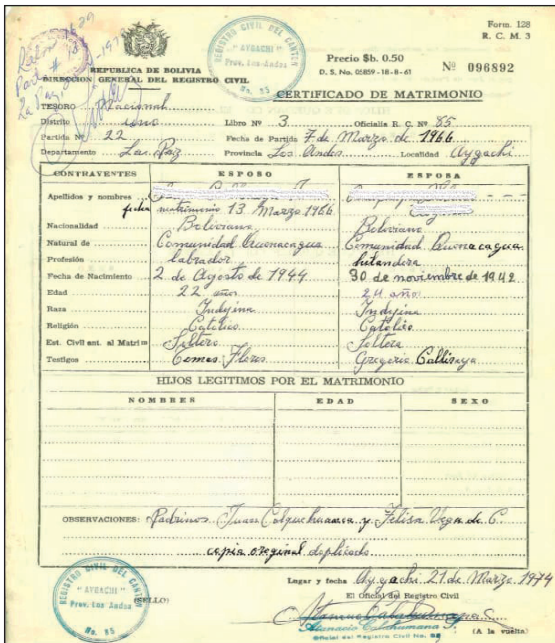 Form. 128
R. C. M. 3
REGISTRO CIVIL DEL CANTON
" AYGACHI "
Prov. Los Andes
No. 85
Precio $b. 0.50
D. S. No. 05859 - 18-8-61
Nº 096892
REPUBLICA DE BOLIVIA
DIRECCION GENERAL DEL REGISTRO CIVIL
CERTIFICADO DE MATRIMONIO
TESORO Nacional
Distrito uno Libro Nº 3 Oficialía R. C. Nº 85
Partida Nº 22 Fecha de Partida 7 de Marzo de 1966
Departamento La Paz Provincia Los Andes Localidad Aygachi
CONTRAYENTES ESPOSO ESPOSA
Apellidos y nombres
fecha matrimonio 13 Marzo 1966
Nacionalidad Boliviano Boliviana
Natural de Comunidad Quenacagua Comunidad Quenacagua
Profesión labrador hilandera
Fecha de Nacimiento 2 de Agosto de 1944 30 de noviembre de 1942
Edad 22 años 24 años
Raza Indijina Indijina
Religión Católico Católico
Est. Civil ant. al Matrim Soltero Soltera
Testigos Flores Gregorio Callisaya
HIJOS LEGITIMOS POR EL MATRIMONIO
NOMBRES EDAD SEXO
OBSERVACIONES: Padrinos Juan Colquehuanca y Felisa Vega de C.
copia original duplicado
Lugar y fecha Aygachi, 21 de Marzo, 1974
El Oficial del Registro Civil
REGISTRO CIVIL DEL CANTON
" AYGACHI "
Prov. Los Andes
No. 85
(SELLO)
Oficial del Registro Civil No. 85
(A la vuelta)